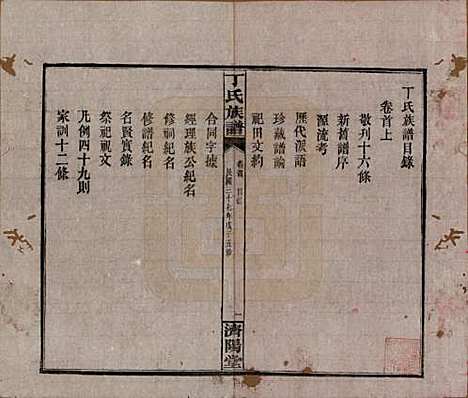 丁氏族譜目錄
卷首上
敬刊十六條
新舊譜序
源流考
歷代派語
珍藏譜諭
祀田文約
丁氏族譜
卷首 目錄
民國三十七年戊子五修
一
濟陽堂
合同字據
經理族公紀名
修祠紀名
修譜紀名
名賢實錄
祭祀祝文
凡例四十九則
家訓十二條